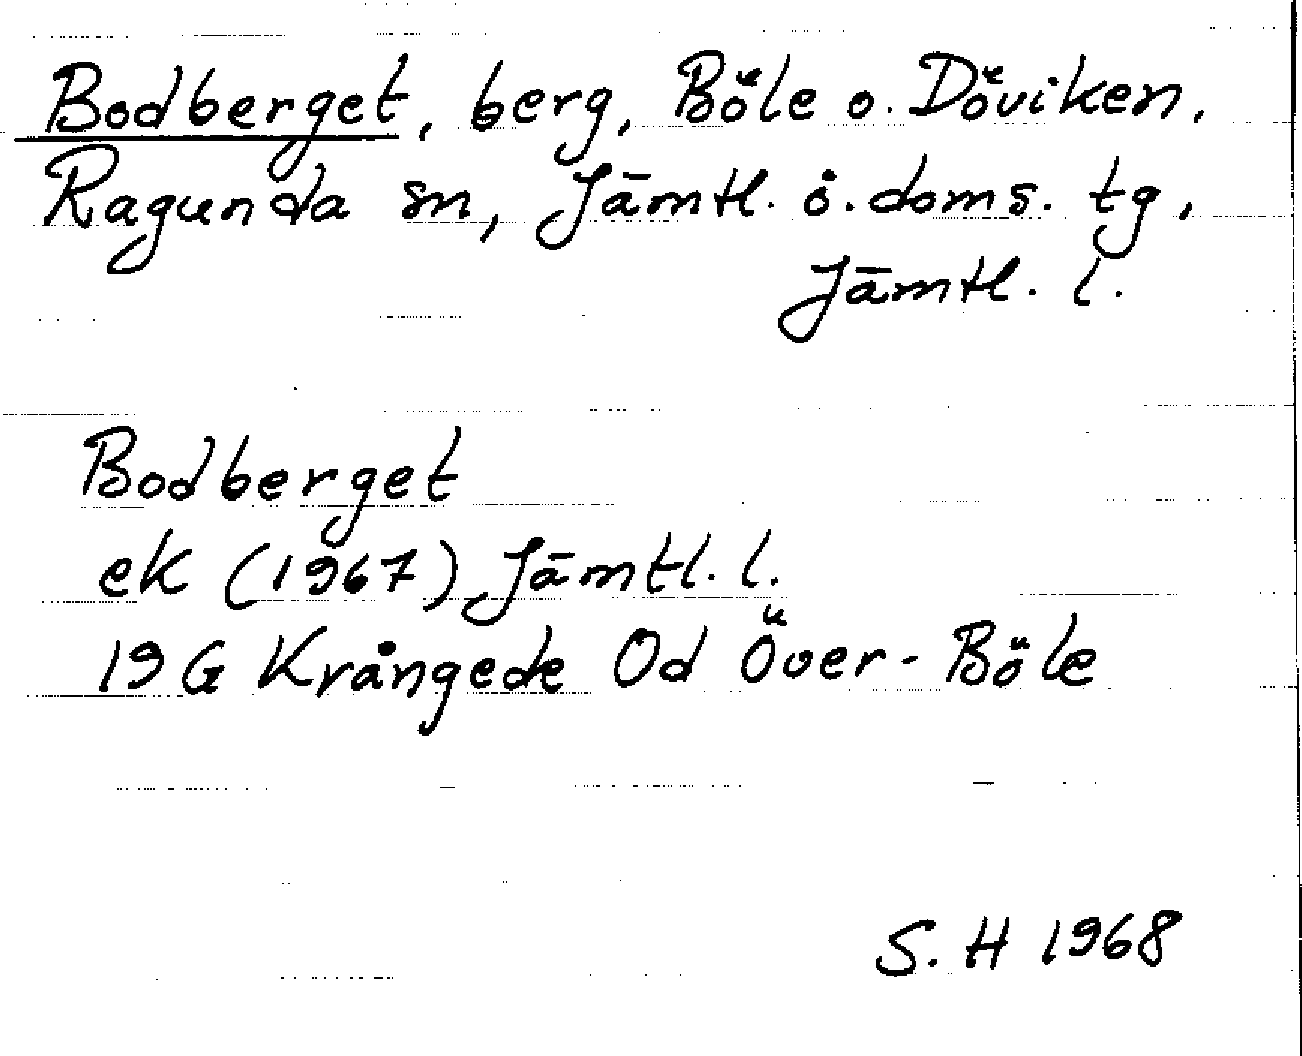 Bodberget, berg, Böle o. Döviken,
Ragunda sn, Jämtl. ö. doms. tg,
Jämtl. l.
Bodberget
ek (1967) Jämtl. l.
19G Krångede Od Över-Böle
S. H 1968